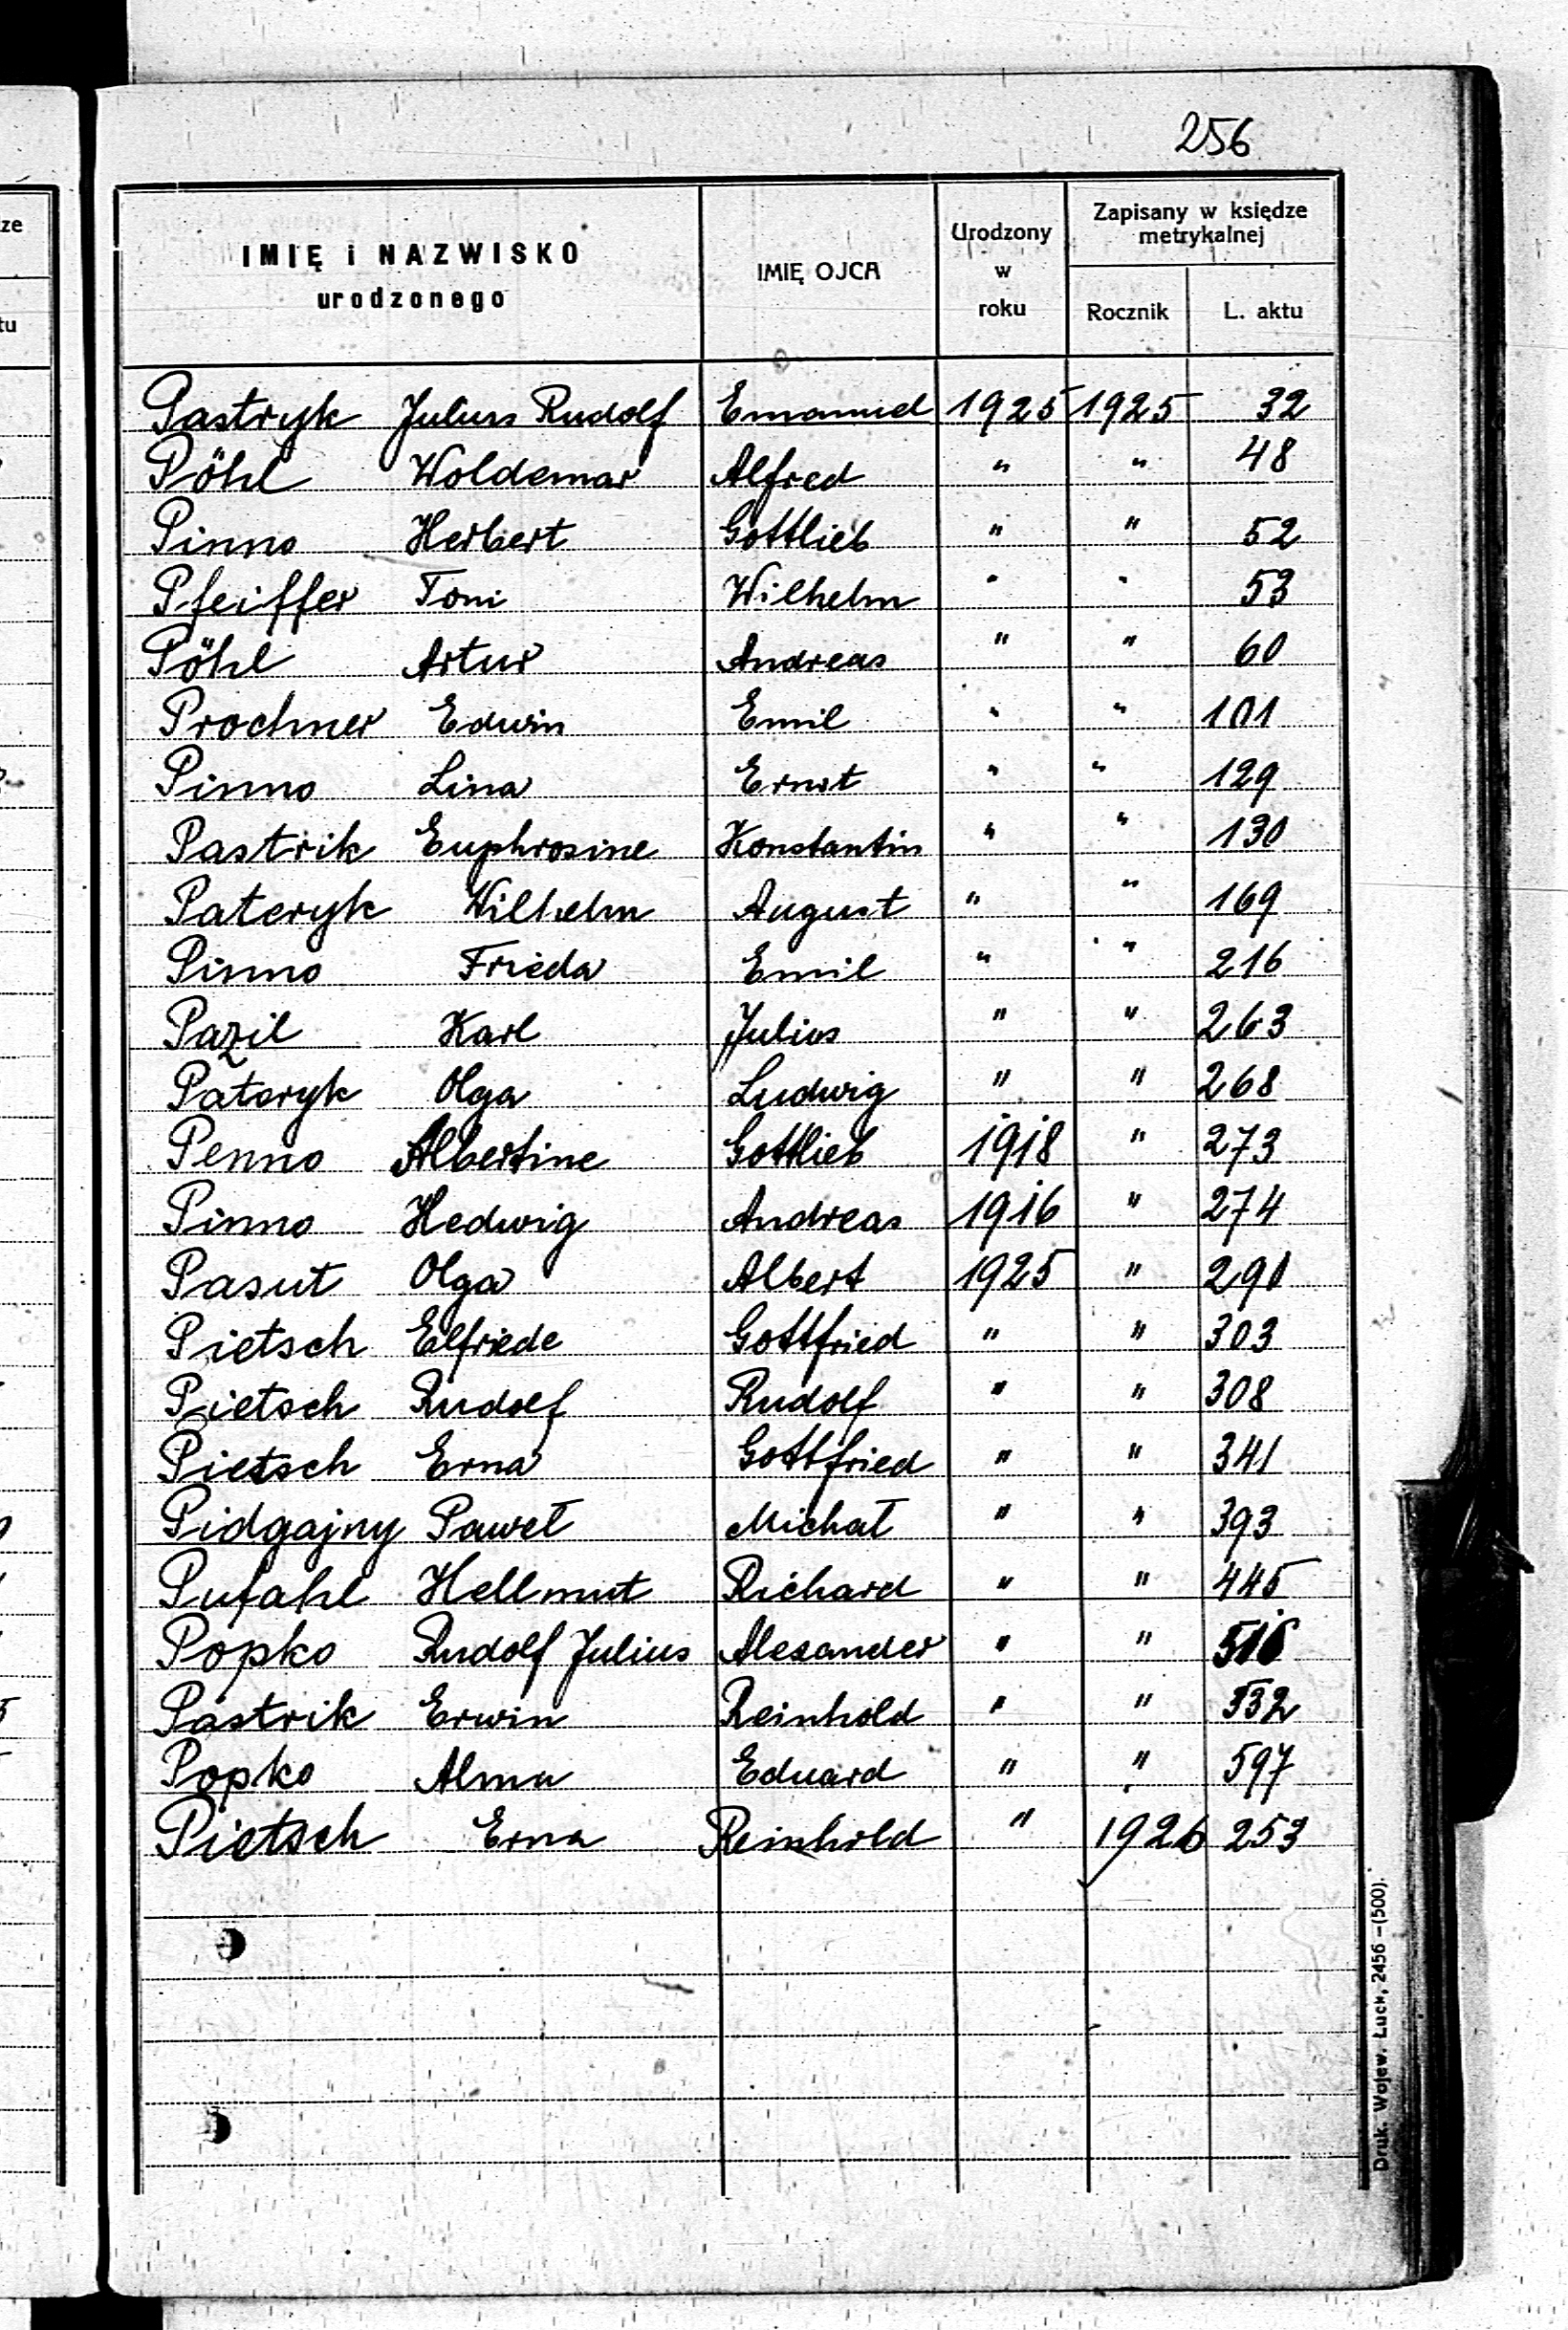 256
IMIĘ i NAZWISKO urodzonego IMIĘ OJCA Urodzony w roku Zapisany w księdze metrykalnej Rocznik L. aktu
Pastryk Julius Rudolf Emanuel 1925 1925 32
Pöhl Woldemar Alfred " " 48
Pinno Herbert Gottlieb " " 52
Pfeiffer Toni Wilhelm " " 53
Pöhl Artur Andreas " " 60
Prochner Edwin Emil " " 101
Pinno Lina Ernst " " 129
Pastrik Euphrosine Konstantin " " 130
Pateryk Wilhelm August " " 169
Pinno Frieda Emil " " 216
Pazil Karl Julius " " 263
Pateryk Olga Ludwig " " 268
Penno Albertine Gottlieb 1918 " 273
Pinno Hedwig Andreas 1916 " 274
Pasut Olga Albert 1925 " 291
Pietsch Elfriede Gottfried " " 303
Pietsch Rudolf Rudolf " " 308
Pietsch Erna Gottfried " " 341
Pidgajny Paweł Michał " " 393
Pufahl Hellmut Richard " " 445
Popko Rudolf Julius Alexander " "
Pastrik Erwin Reinhold " " 532
Popko Alma Eduard " " 597
Pietsch Erna Reinhold " 1926 253
Druk. Wojew. Łuck, 2456 –(500).
ze
tu